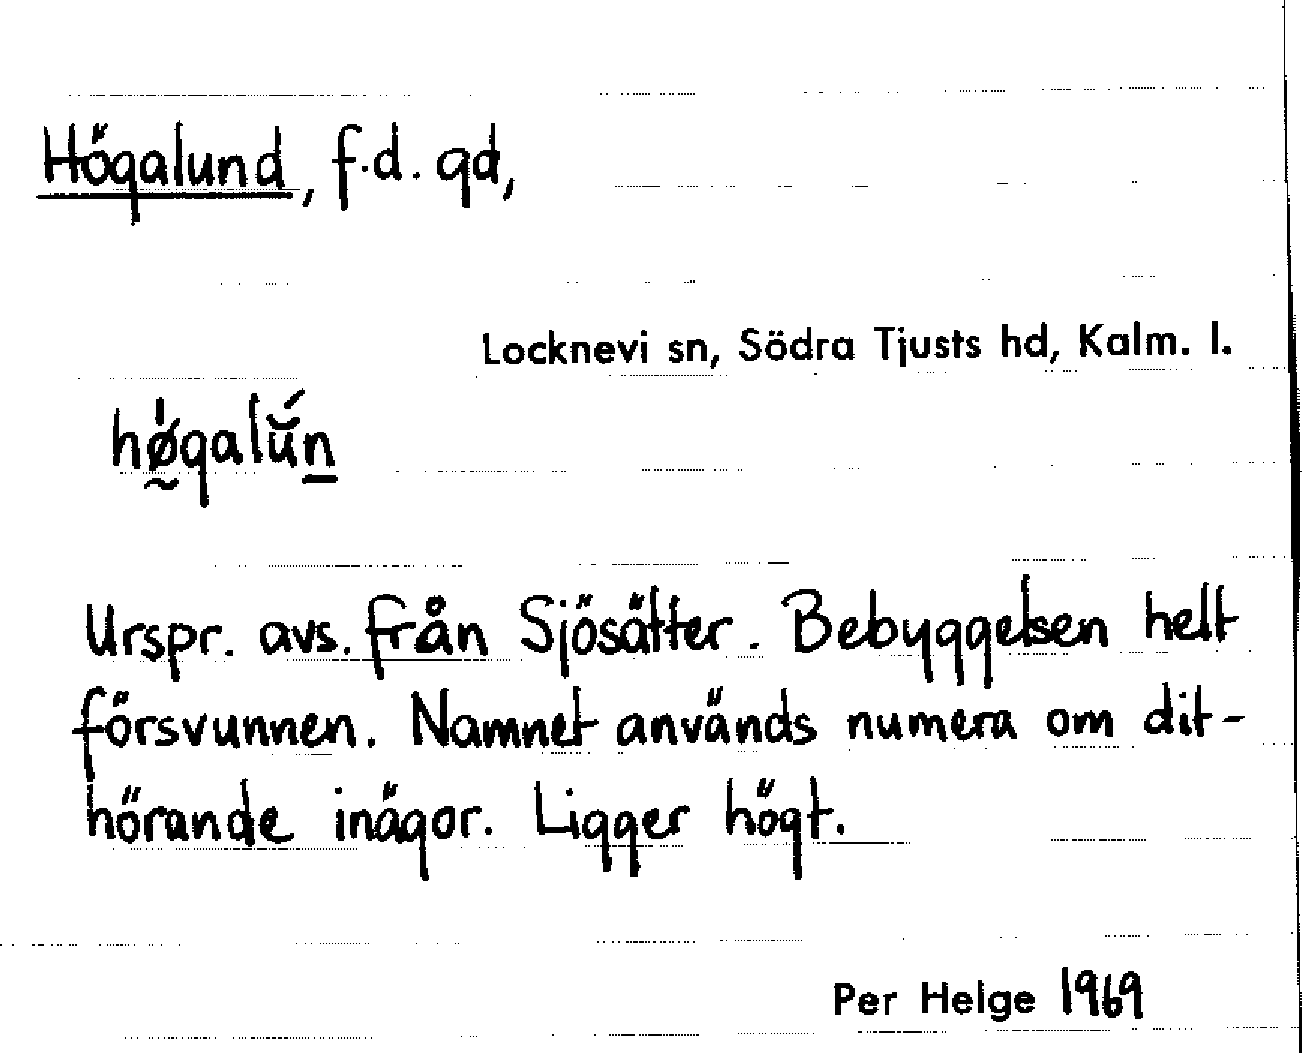 Högalund, f.d. gd,
Locknevi sn, Södra Tjusts hd, Kalm. l.
hø̰̍galŭ́n̲
Urspr. avs. från Sjösätter. Bebyggelsen helt
försvunnen. Namnet används numera om dit-
hörande inägor. Ligger högt.
Per Helge 1969